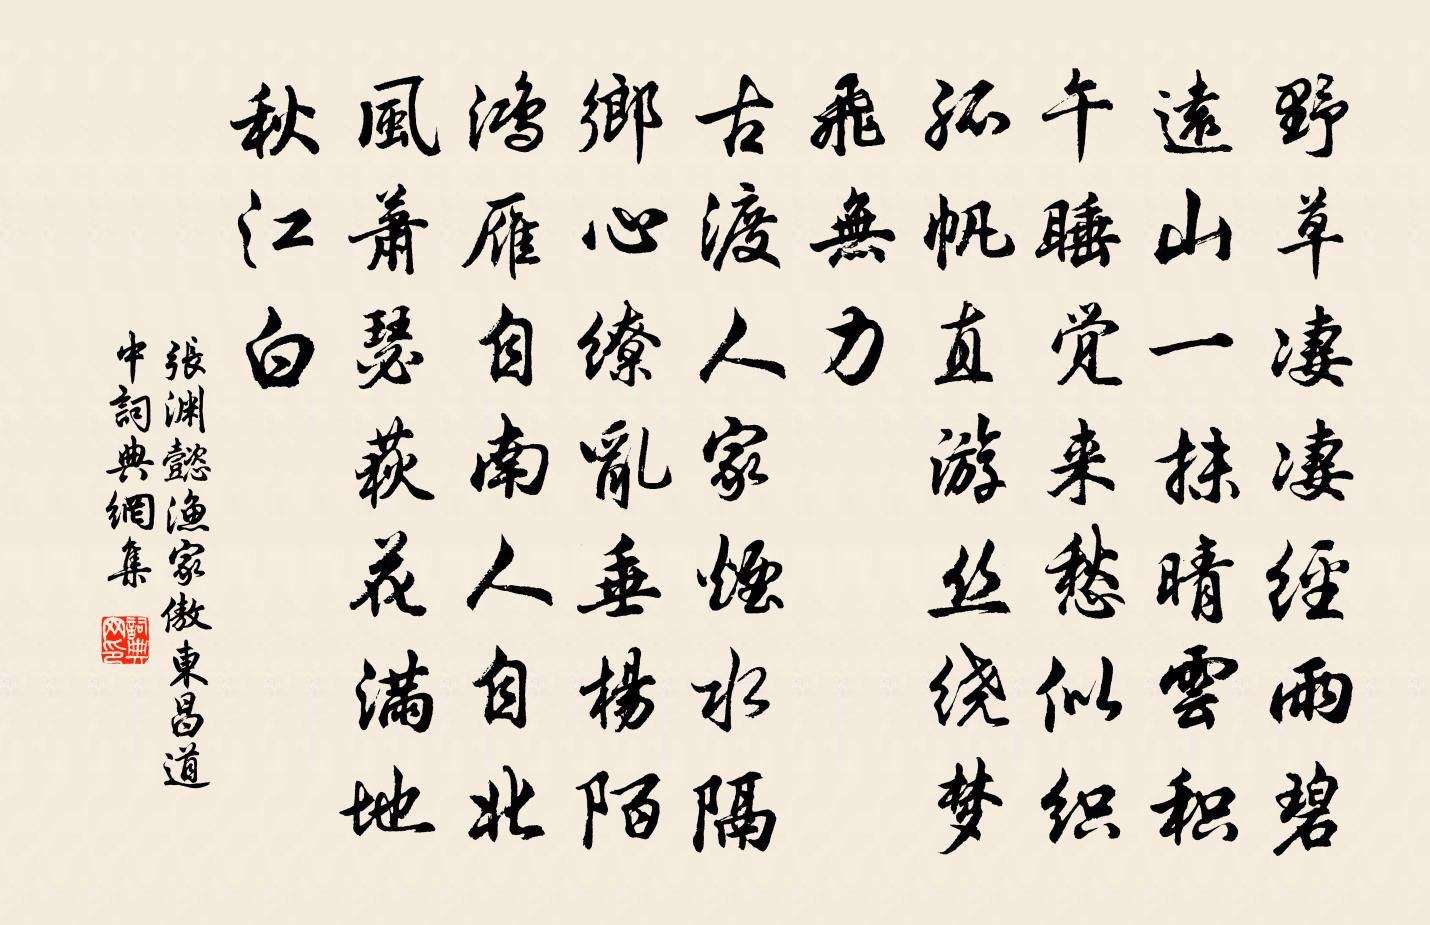 野草凄凄經雨碧
遠山一抹晴雲积
午睡觉来愁似织
孤帆直游丝绕梦
飛無力
古渡人家煙水隔
鄉心缭亂垂楊陌
鴻雁自南人自北
風蕭瑟萩花满地
秋江白
張渊懿漁家傲東昌道
中詞典網集
詞典网印